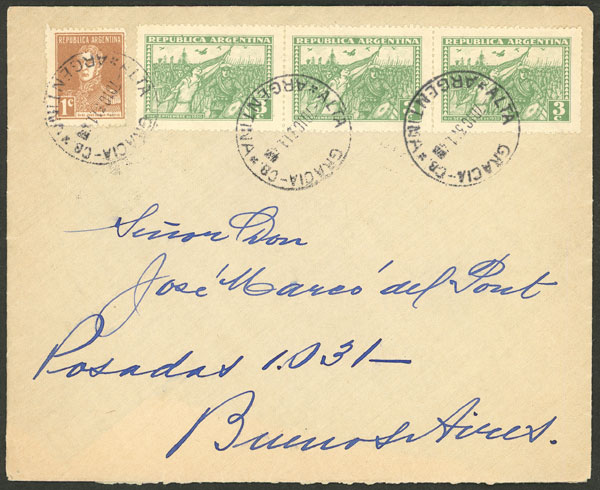 REPUBLICA ARGENTINA
1c
REPUBLICA ARGENTINA
REPUBLICA ARGENTINA
REPUBLICA ARGENTINA
3c
ALTA GRACIA-CB * ARGENTINA *
ALTA GRACIA-CB * ARGENTINA *
ALTA GRACIA-CB * ARGENTINA *
Señor Don
José Marcó del Pont
Posadas 1.031—
Buenos Aires.